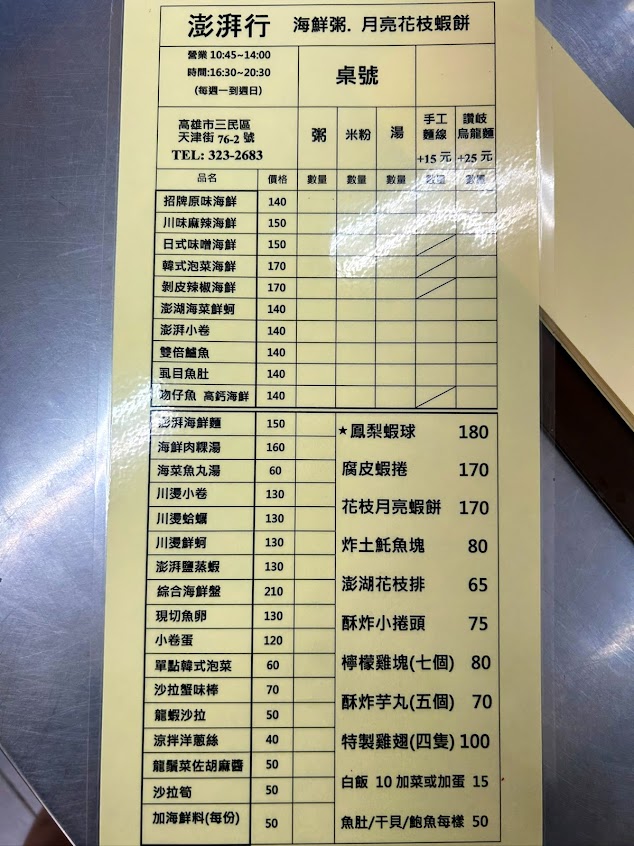 澎湃行 海鮮粥. 月亮花枝蝦餅
營業 10:45~14:00
時間:16:30~20:30
(每週一到週日)
桌號
高雄市三民區
天津街 76-2 號
TEL: 323-2683
粥 米粉 湯 手工麵線 +15 元 讚岐烏龍麵 +25 元
品名 價格 數量 數量 數量 數量 數量
招牌原味海鮮 140
川味麻辣海鮮 150
日式味噌海鮮 150
韓式泡菜海鮮 170
剝皮辣椒海鮮 170
澎湖海菜鮮蚵 140
澎湃小卷 140
雙倍鱸魚 140
虱目魚肚 140
吻仔魚 高鈣海鮮 140
澎湃海鮮麵 150
海鮮肉粿湯 160
海菜魚丸湯 60
川燙小卷 130
川燙蛤蠣 130
川燙鮮蚵 130
澎湃鹽蒸蝦 130
綜合海鮮盤 210
現切魚卵 130
小卷蛋 120
單點韓式泡菜 60
沙拉蟹味棒 70
龍蝦沙拉 50
涼拌洋蔥絲 40
龍鬚菜佐胡麻醬 50
沙拉筍 50
加海鮮料(每份) 50
★鳳梨蝦球 180
腐皮蝦捲 170
花枝月亮蝦餅 170
炸土魠魚塊 80
澎湖花枝排 65
酥炸小捲頭 75
檸檬雞塊(七個) 80
酥炸芋丸(五個) 70
特製雞翅(四隻) 100
白飯 10 加菜或加蛋 15
魚肚/干貝/鮑魚每樣 50